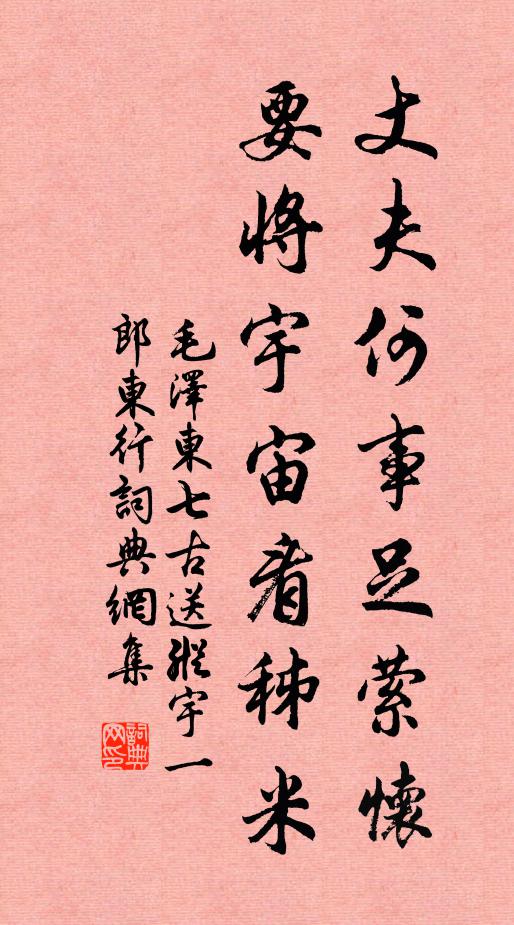 丈夫何事足萦懷
要將宇宙看稊米
毛澤東七古送縱宇一
郎東行詞典網集
詞典
网印